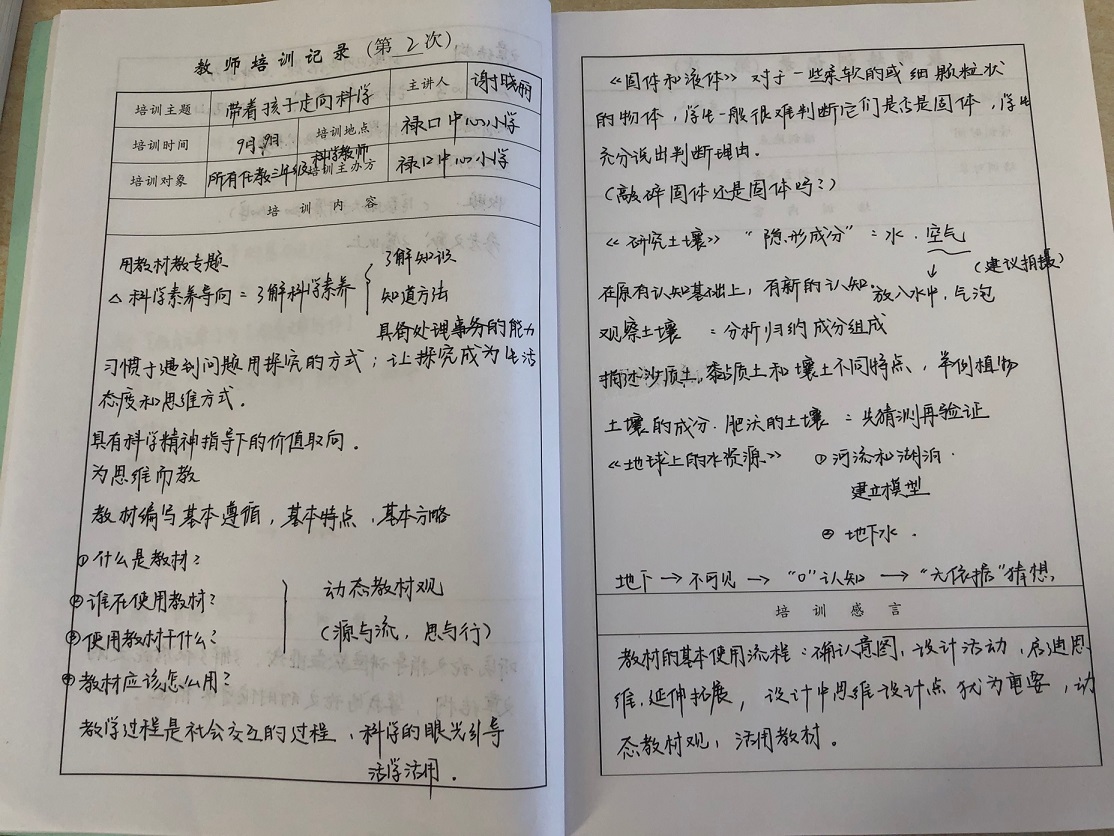 教师培训记录(第2次)
培训主题 带着孩子走向科学 主讲人 谢晓丽
培训时间 9月9日 培训地点 禄口中心小学
培训对象 所有任教三年级科学教师 培训主办方 禄口中心小学
培训内容
用教材教专题
△科学素养导向:了解科学素养 { 了解知识
知道方法
具备处理事务的能力
习惯于遇到问题用探究的方式;让探究成为生活
态度和思维方式.
具有科学精神指导下的价值取向.
为思维而教
教材编写基本遵循,基本特点,基本方略
①什么是教材?
②谁在使用教材?
③使用教材干什么?
④教材应该怎么用?
动态教材观
(源与流,思与行)
教学过程是社会交互的过程,科学的眼光引导
活学活用.
《固体和液体》对于一些柔软的或细颗粒状
的物体,学生一般很难判断它们是否是固体,学生
充分说出判断理由.
(敲碎固体还是固体吗?)
《研究土壤》"隐形成分":水.空气
(建议拍摄)
在原有认知基础上,有新的认知.放入水中,气泡
观察土壤:分析归纳成分组成
描述沙质土、黏质土和壤土不同特点,举例植物
土壤的成分.肥沃的土壤:先猜测再验证
《地球上的水资源》①河流和湖泊.
建立模型
②地下水.
地下→不可见→"0"认知→"无依据"猜想,
培训感言
教材的基本使用流程:确认意图,设计活动,启迪思
维,延伸拓展,设计中思维设计点尤为重要,动
态教材观,活用教材。